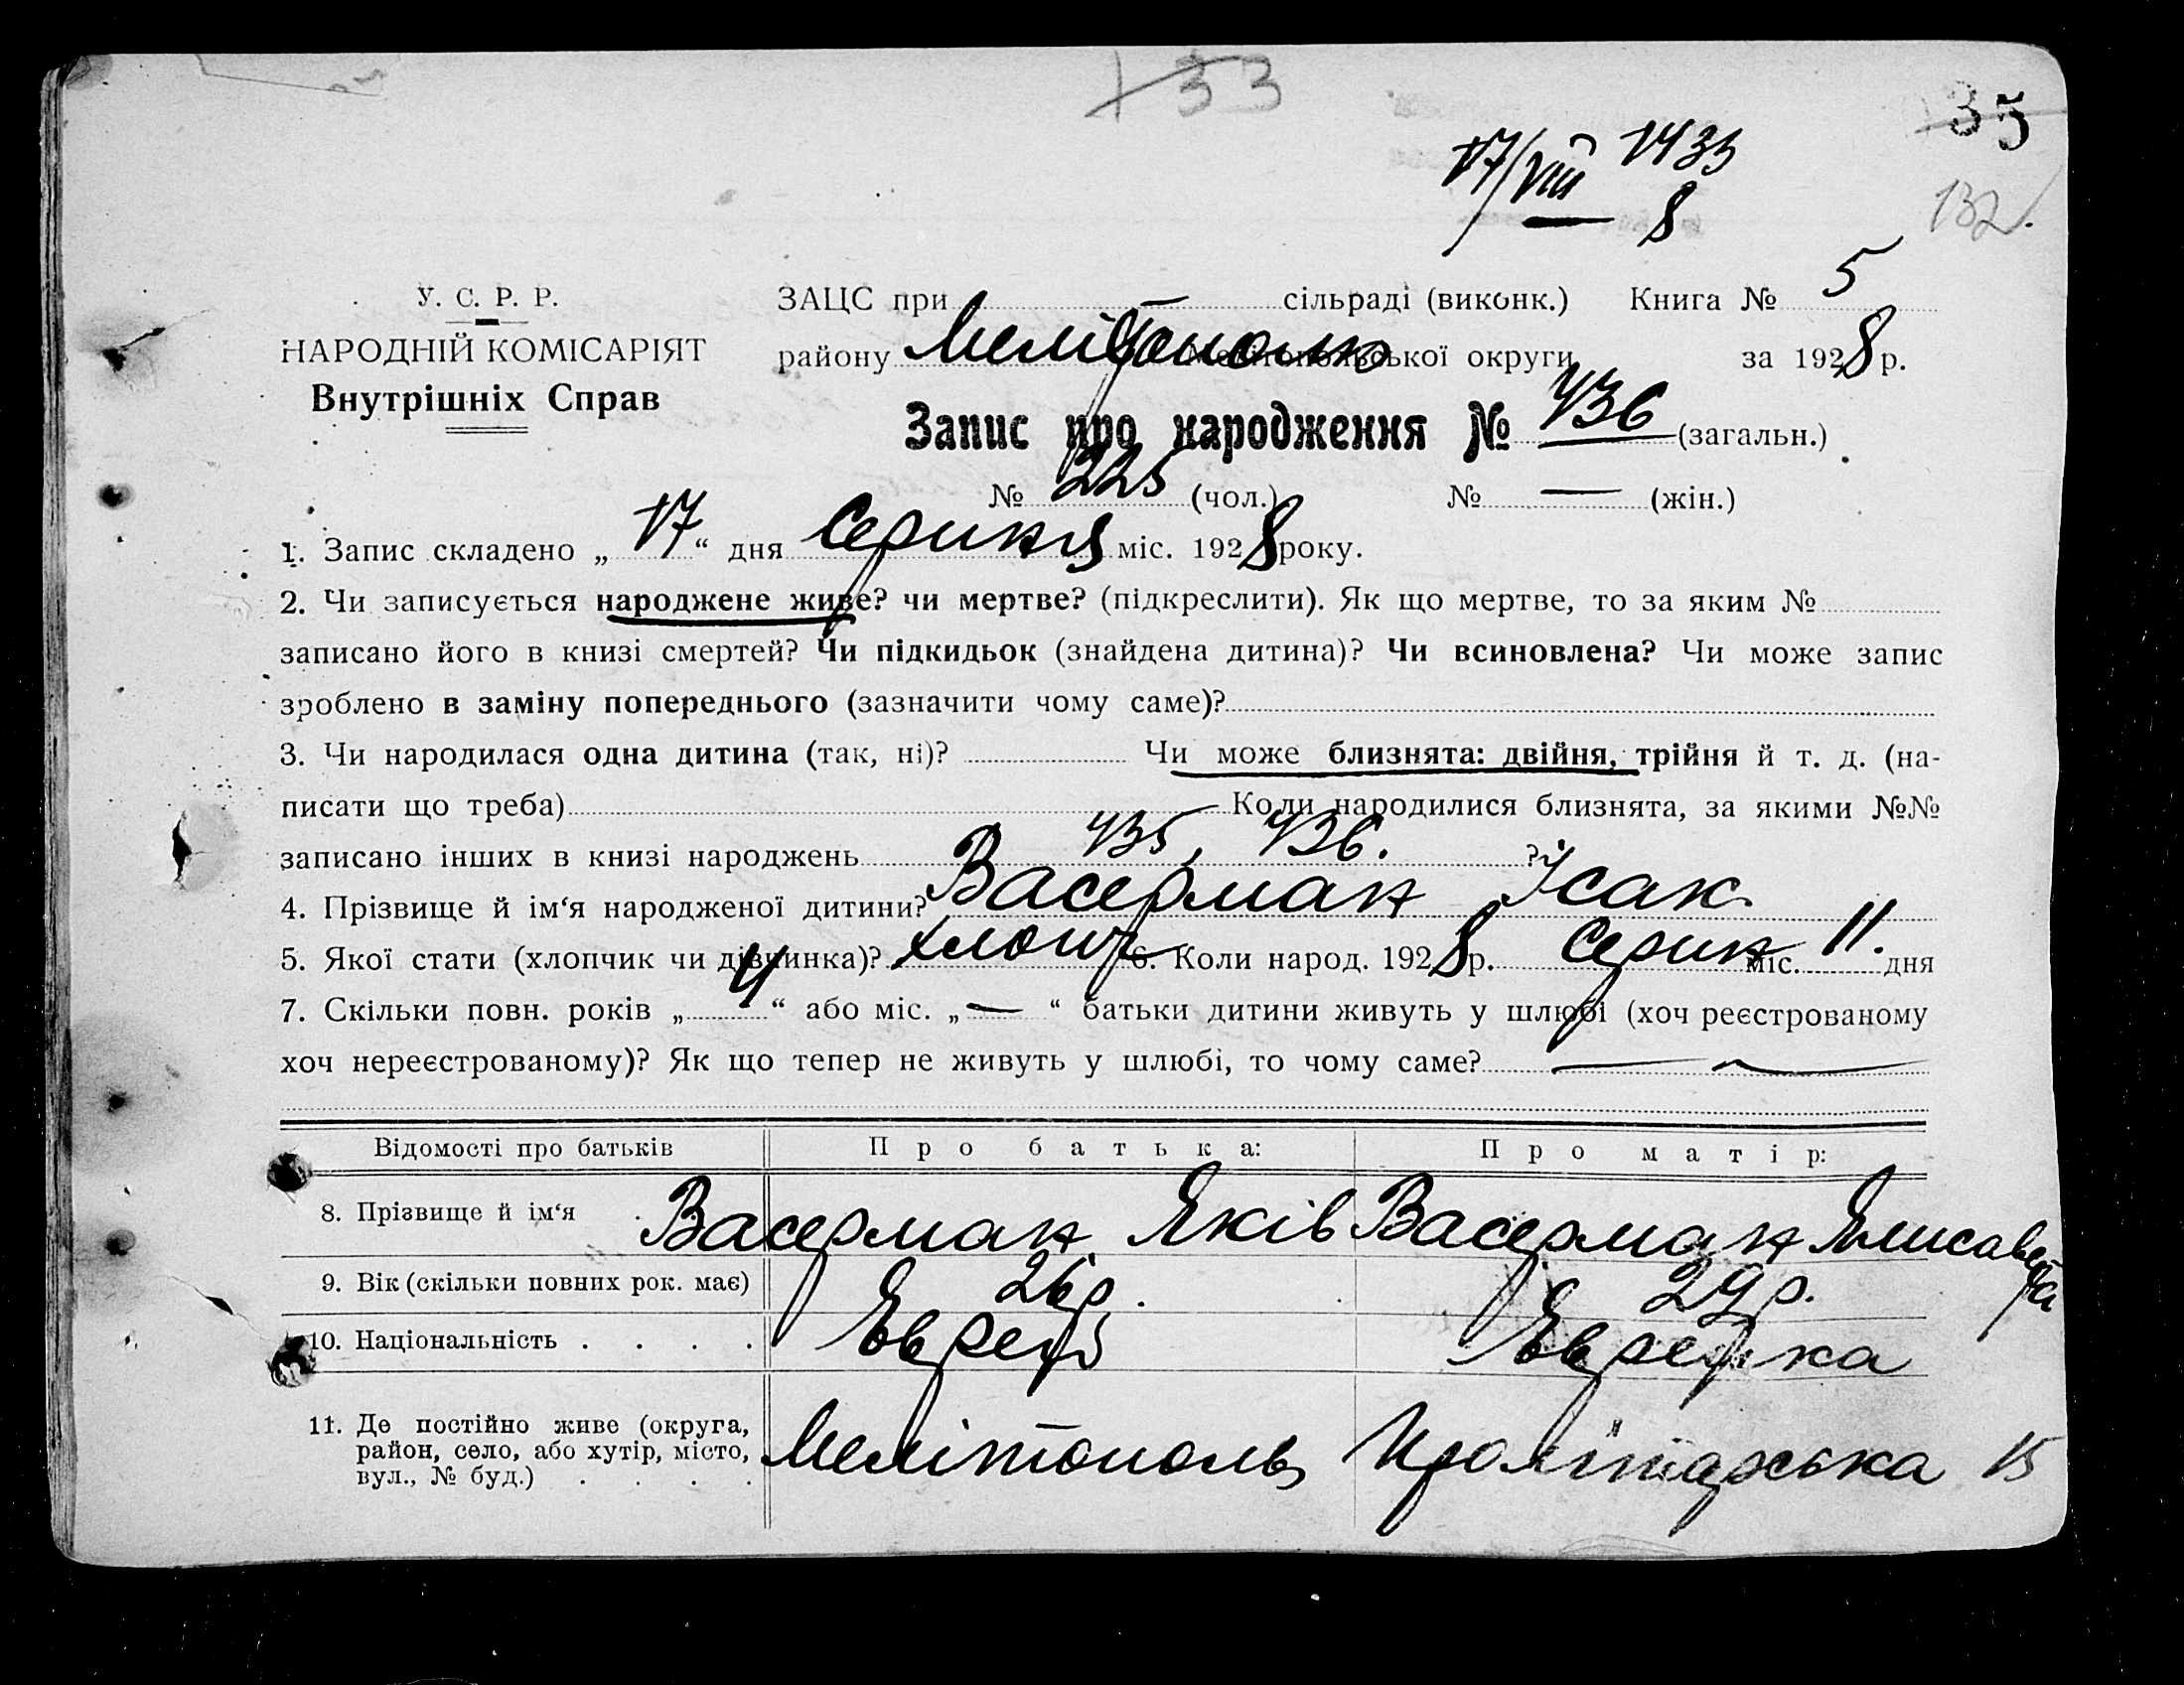 133
35
17/VIII 1435
8
132.
У. С. Р. Р.
НАРОДНІЙ КОМІСАРІЯТ
Внутрішніх Справ
ЗАЦС при сільраді (виконк.) Книга № 5
району Мелітополь Мелітопольської округи за 1928 р.
Запис про народження № 436 (загальн.)
№ 225 (чол.) № — (жін.)
1. Запис складено „17“ дня Серпня міс. 1928 року.
2. Чи записується народжене живе? чи мертве? (підкреслити). Як що мертве, то за яким №
записано його в книзі смертей? Чи підкидьок (знайдена дитина)? Чи всиновлена? Чи може запис
зроблено в заміну попереднього (зазначити чому саме)?
3. Чи народилася одна дитина (так, ні)? Чи може близнята: двійня, трійня й т. д. (на-
писати що треба) Коли народилися близнята, за якими №№
записано інших в книзі народжень 435, 436. ?
4. Прізвище й ім‘я народженої дитини? Васерман Ісак
5. Якої стати (хлопчик чи дівчинка)? хлопч 6. Коли народ. 1928 р. Серпн міс. 11. дня
7. Скільки повн. років „4“ або міс. „—“ батьки дитини живуть у шлюбі (хоч реєстрованому
хоч нереєстрованому)? Як що тепер не живуть у шлюбі, то чому саме? —
Відомості про батьків Про батька: Про матір:
8. Прізвище й ім‘я . Васерман Яків Васерман Єлисавета
9. Вік (скільки повних рок. має) 26 р. 29 р.
10. Національність . . . . Єврей Єврейка
11. Де постійно живе (округа,
район, село, або хутір, місто,
вул., № буд.) . . . . Мелітополь Пролітарська 15